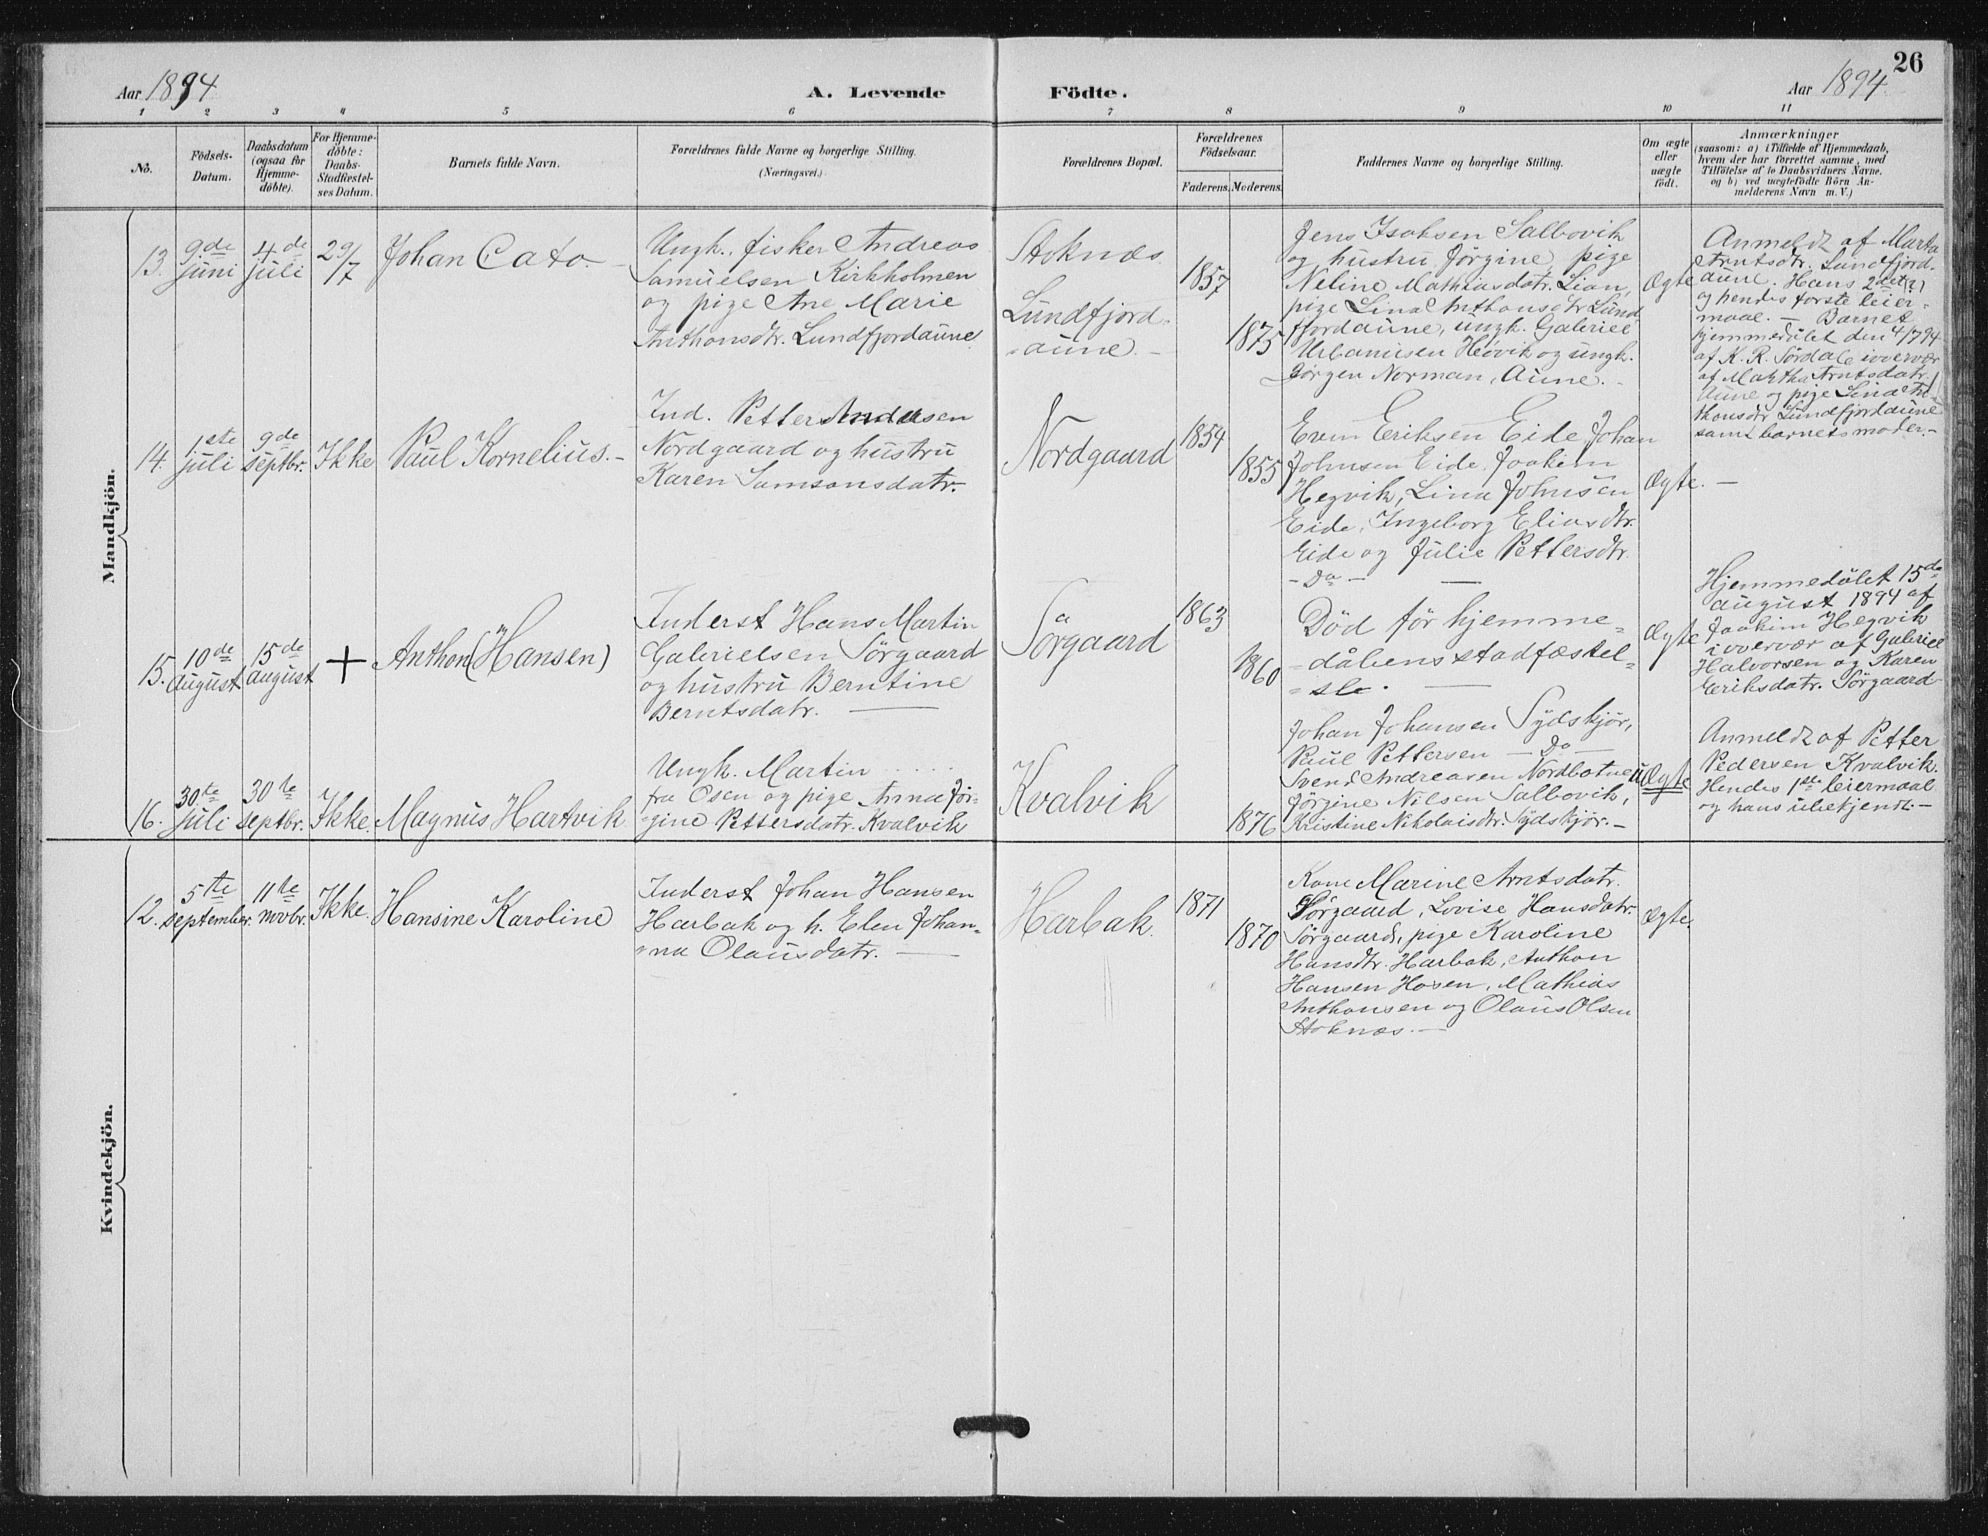 26
Aar 1894
A. Levende
Födte.
Aar 1894
1 2 3 4 5 6 7 8 9 10 11
No.
Födsels-
Datum.
Daabsdatum
(ogsaa for
Hjemme-
döbte).
For Hjemme-
döbte:
Daabs-
Stadfæstel-
ses Datum.
Barnets fulde Navn.
Forældrenes fulde Navne og borgerlige Stilling.
(Næringsvei.)
Forældrenes Bopæl.
Forældrenes
Födselsaar.
Faderens. Moderens.
Faddernes Navne og borgerlige Stilling.
Om ægte
eller
uægte
födt.
Anmærkninger
(saasom: a) i Tilfælde af Hjemmedaab,
hvem der har forrettet samme, med
Tilföielse af to Daabsvidners Navne,
og b) ved uægtefödte Börn An-
melderens Navn m. V.)
Mandkjön.
13.
9de
juni
4de
juli
29/7
Johan Cato.
Ungk., fisker Andreas
Samuelsen Kirkholmen
og pige Ane Marie
Anthonsdtr. Lundfjordaune
Stoknæs
Lundfjord-
aune.
1857
1875
Jens Isaksen Salbovik
og hustru Jørgine, pige
Neline Mathiasdatr. Lian,
pige Lina Anthonsdtr Lund
fjordaune, ungk. Gabriel
Urbanusen Høvik og ungk.
Jørgen Norman, Aune.
Ægte
Anmeldt af Marta
Arntsdtr. Lundfjord-
aune. Hans 2det(?)
og hendes første leier-
maal. — Barnet
hjemmedøbt den 4/7 94
af K. R. Sørdal i overvær
af Martha Arntsdatr.
Aune og pige Lina An-
thonsdtr Lundfjordaune
samt barnets moder.
14.
1ste
juli
9de
septbr.
Ikke
Paul Kornelius.
Ind. Petter Andersen
Nordgaard og hustru
Karen Samsonsdatr.
Nordgaard
1854
1855
Even Eriksen Eide, Johan
Johnsen Eide, Joakim
Hegvik, Lina Johnsen
Eide, Ingeborg Eliasdtr.
Eide og Julie Pettersdtr.
- Do -
Ægte.
15.
10de
August
15de
august
+
Anthon (Hansen)
Inderst Hans Martin
Gabrielsen Sørgaard
og hustru Berntine
Berntsdatr.
Sørgaard
1863
1860
Død før hjemme-
dåbens stadfæstel-
se.
Ægte
Hjemmedøbt 15de
august 1894 af
Joakim Hegvik
i overvær af Gabriel
Halvorsen og Karen
Eriksdatr. Sørgaard
16.
30te
juli
30te
septbr.
Ikke.
Magnus Hartvik
Ungk. Martin .....
fra Osen og pige Anna Jør-
gine Pettersdatr. Kvalvik
Kvalvik
1876
Johan Johansen Sydskjør,
Paul Pettersen — Do —
Svend Andreasen Nordbotnen
Jørgine Nilsen Salbovik,
Kristine Nikolaisdtr. Sydskjør.
uÆgte
Anmeldt af Petter
Pedersen Kvalvik.
Hendes 1ste leiermaal
og hans ubekjendt.
Kvindekjön.
12.
5te
september
11te
novbr.
Ikke.
Hansine Karoline
Inderst Johan Hansen
Harbak og h. Elen Johan-
na Olausdatr.
Harbak.
1871
1870
Kone Marine Arntsdatr.
Sørgaard, Lovise Hansdatr.
Sørgaard, pige Karoline
Hansdtr. Harbak, Anthon
Hansen Hosen, Mathias
Anthonsen og Olaus Olsen
Stoknæs.
Ægte.